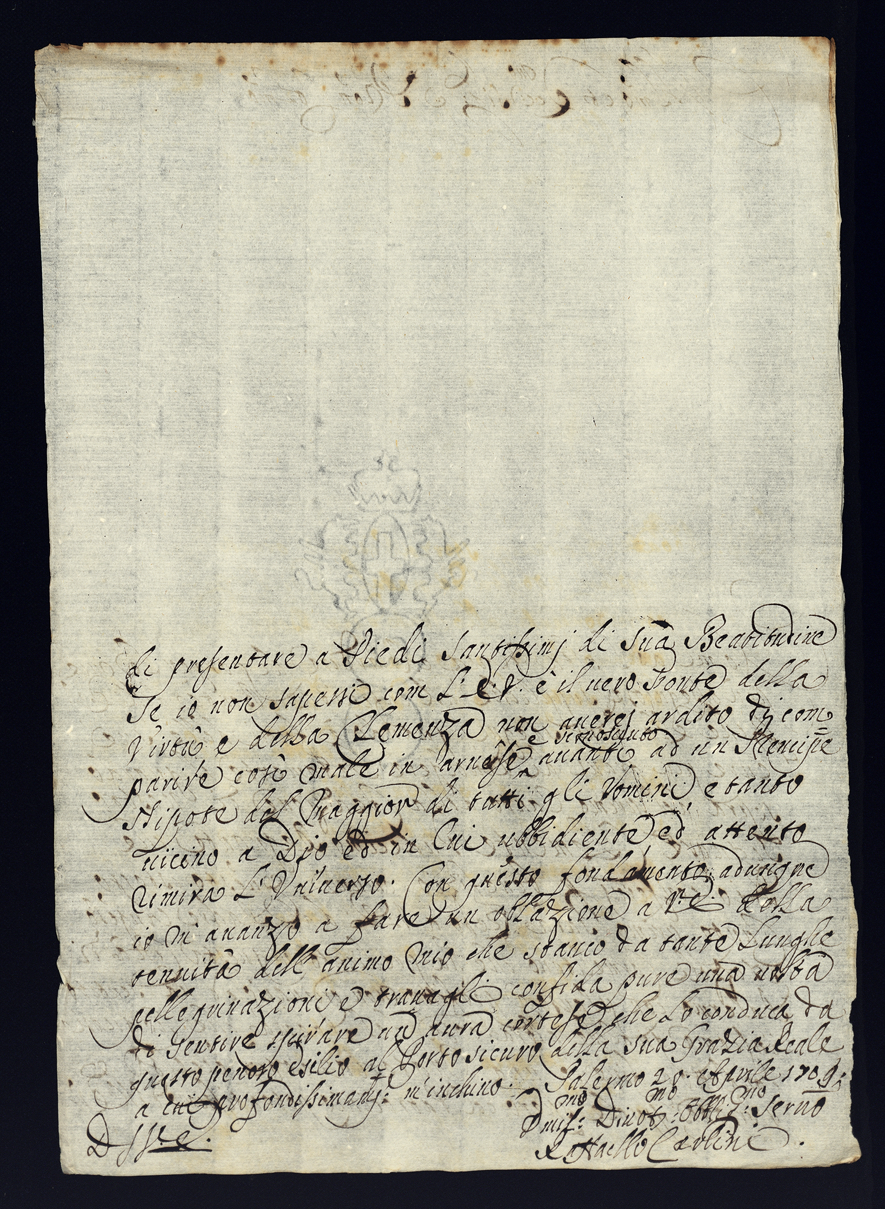 di presentare a Piedi Santissimj di Sua Beatitudine
Se io non sapessi com L'E.V. è il uero Fonte della
Virtù e della Clemenza non auerei ardito di com
parire così male in arnese e sconosciuto auanti ad un Principe
Nipote del Maggior di tutti gli Vomini e tanto
uicino a Dio ed in Cui ubbidiente ed attento
rimira L'Vniuerso. Con questo fondamento adunque
io m'auanzo a fare un obblazione a V.E. della
tenuità dell'animo mio che stanco da tante Lunghe
pellegrinazioni e trauagli confida pure una uolta
di sentire spirare un aura cortese che Lo conduca da
questo penoso esilio al Porto sicuro della sua Grazia Reale
a cui profondissimam.te m'inchino. Palermo 28. Aprile 1709.
D V.E. Vmiss.mo Diuot.mo Obblig.mo Seruo
Raffaello Carlini